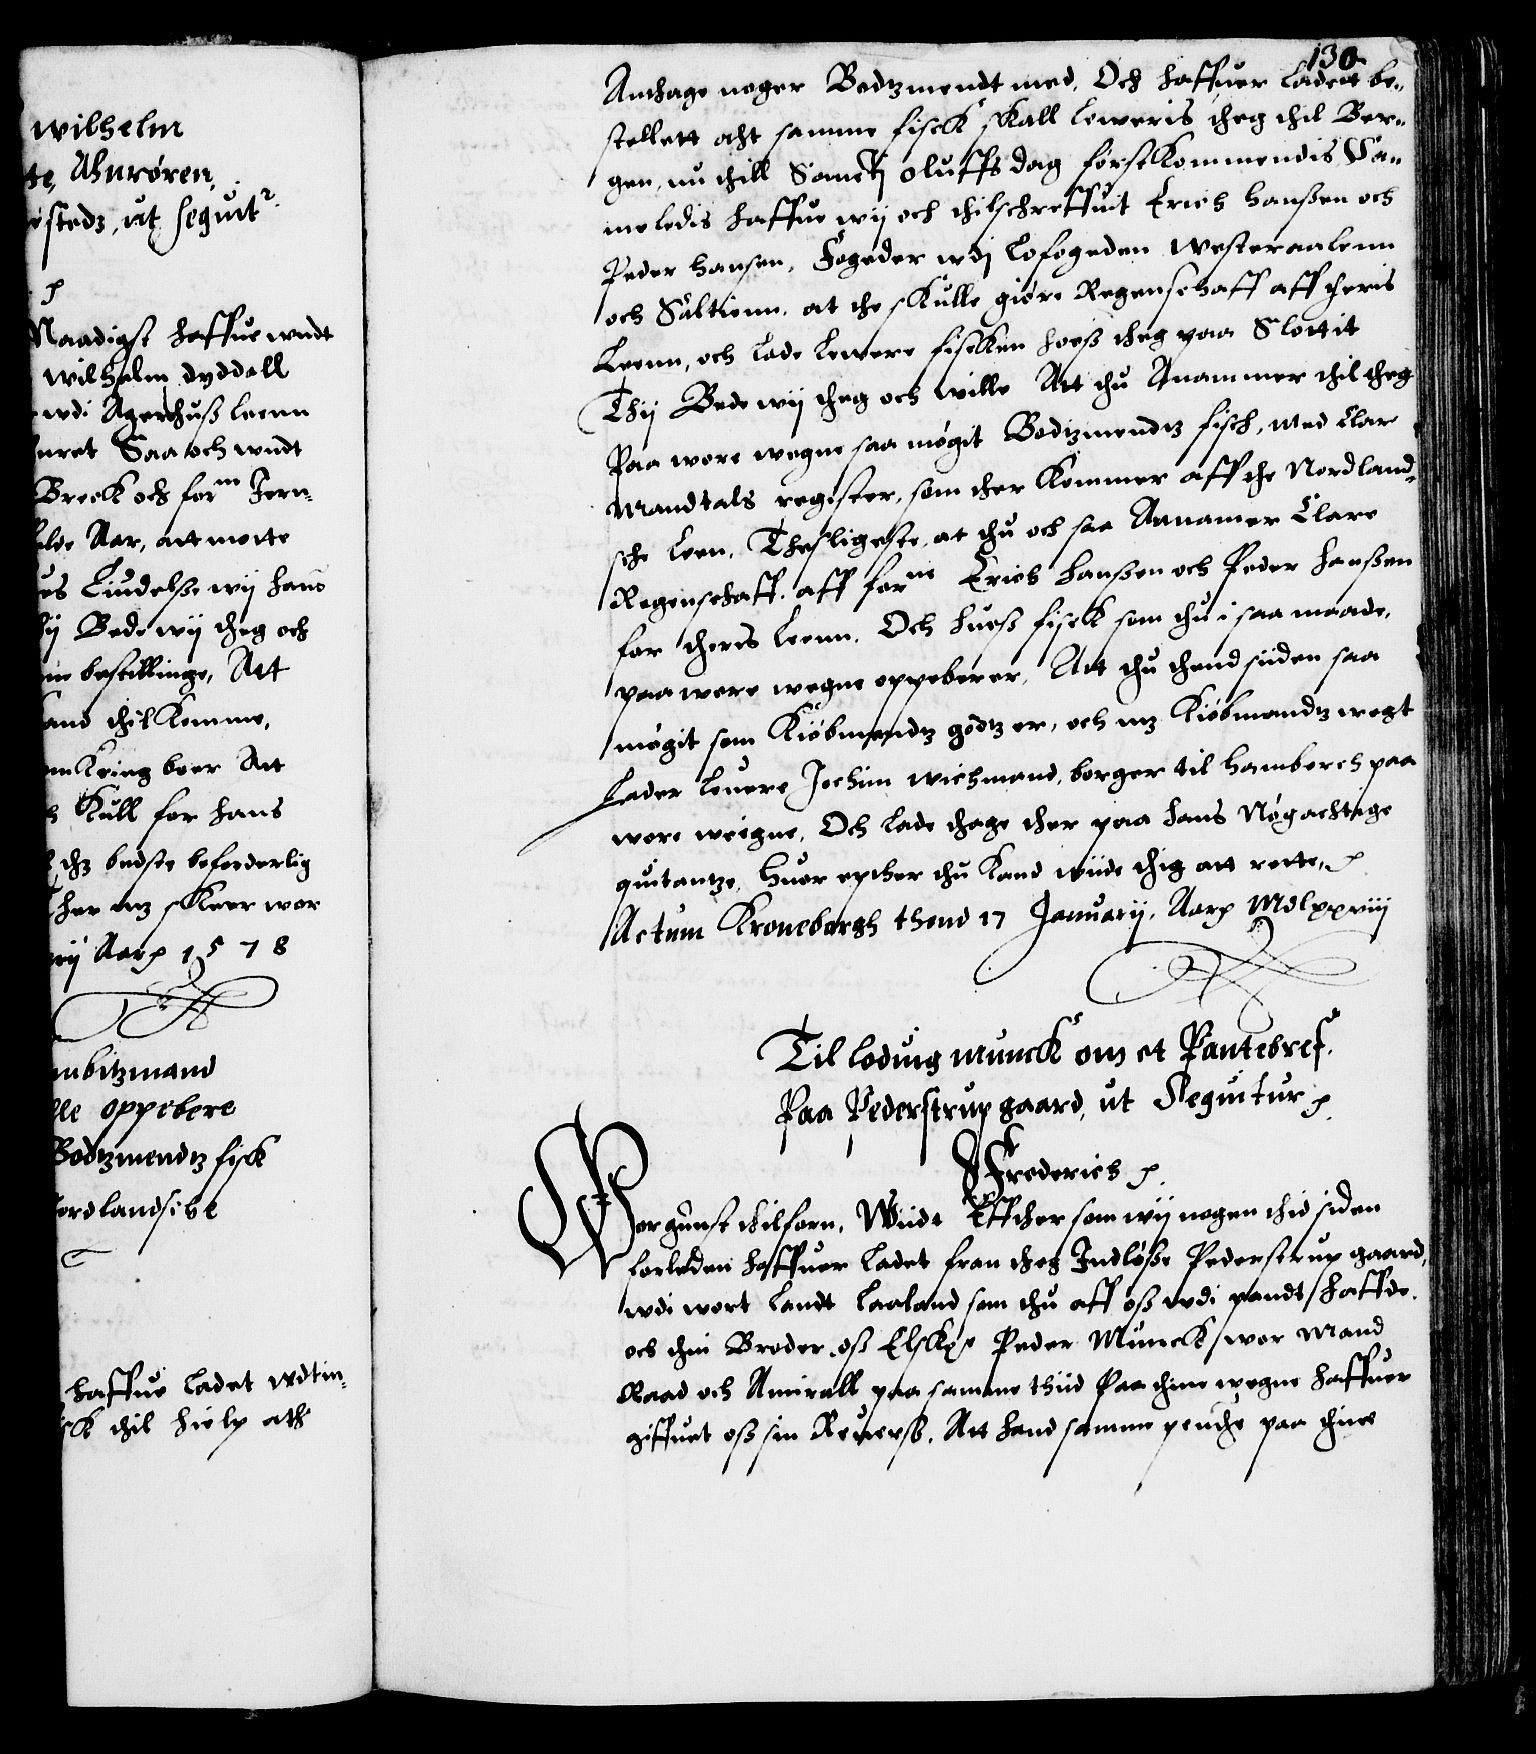 wilhelm
te, Ahnrøren,
estedz, ut sequit^r
Naadigst haffue wndt
wilhelm dyddell
wdi Agershuß leenn
uret Saa och wndt
Breck och for^ne Jern-
ilde Aar, att motte
es Liudelße wij hans
ij Bede wij theg och
nn bestillinge, Att
and thil komme,
nn Kring boer Att
kull for hans
thz bedste beforderlig
ther mz skeer wor
rij Aarp 1578
mbitzmand
lle oppebere
Bodtzmendtz fisk
ordlandske
haffue ladet wdtin-
sk thil hielp ath
130
Anthage noger Bodtzmendt med. Och haffuer ladett be-
stellett atht samme fisck skall leweris theg thil Ber-
gen, nu thill Sancti oluffs dag førstkommendis Sa-
meledis haffue wij och thilschreffuit Erich hanßen och
Peder hansen, Fogeder wdj Lofogeden Westeraalenn
och Saltienn, at the skulle giøre Regenschaff aff theris
Leenn, och lade lewere fiscken hoeß theg paa Slottit
Thij Bede wij theg och wille Att thu Anammer thil theg
Paa wore wegne saa møgit Bodtzmendtz fisch, med klar
Mandtals register, som ther kommer aff the Nordland-
sche Leen. Thesligeste, at thu och saa Annamer klare
Regenschaff aff for^ne Erich hanßen och Peder hanßen
for theris leenn. Och hueß fisck som thu i saa maade,
paa wore wegne oppeberer, Att thu thend siiden saa
møgit som Kiøbmandtz godtz er, och mz kiøbmandtz wegt
Lader leuere Jochim wichmand, borger til hamborch paa
wore weigne, Och lade thage ther paa hans Nøgachtige
quitantze, huor epther thu kand wiide thig att rette, p
Actum Kroneborgh thend 17 Januarij, Aarp Mdlxxviij
Til loduig munck om et Pantebref.
Paa Pederstrup gaard, ut Sequitur p
Frederich p
Wor gunst thilforn, Wiide Effther som wij nogen thid siden
forleden haffuer ladet fran theg Indløße Pederstrup gaard,
wdi wort landt laaland som thu aff oß wdi pandt haffde.
och thin Broder oß Elskp Peder Munck wor Mand
Raad och Amirall paa samme thiid Paa thine wegne haffuer
giffuet oß sin Reuerß, Att hand samme penche paa thine